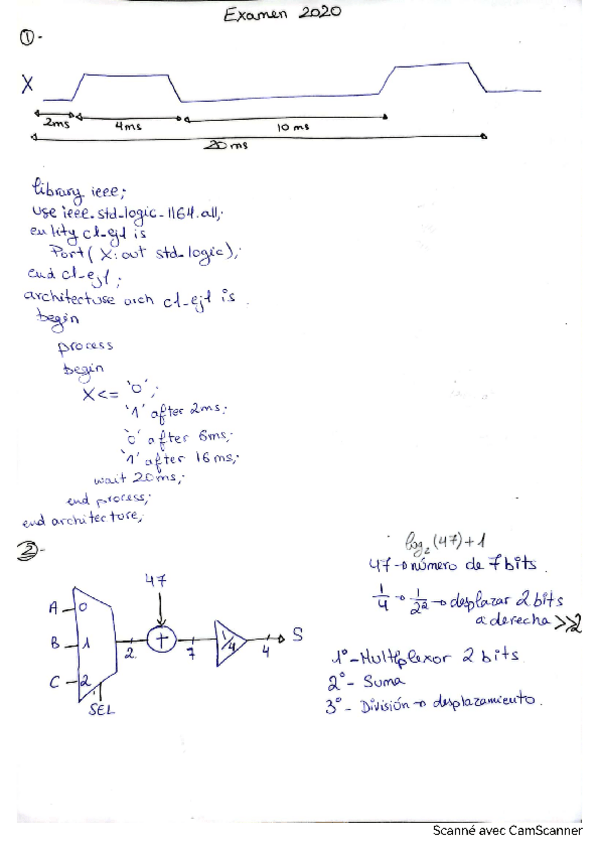 Examen 2020
①-
X
2ms 4ms 10 ms
20 ms
library ieee;
use ieee.std_logic_1164.all;
entity cl_ej1 is
Port( X: out std_logic);
end cl_ej1;
architecture arch cl_ej1 is
begin
process
begin
X<= '0';
'1' after 2ms;
'0' after 6ms;
'1' after 16 ms;
wait 20ms;
end process;
end architecture;
②-
log₂(47)+1
47→número de 7 bits.
1/4 → 1/2² → desplazar 2 bits
a derecha >>2
1°-Multplexor 2 bits
2°- Suma
3°- División → desplazamiento.
47
A 0
B 1
C 2
SEL
2 + 7 1/4 4 S
Scanné avec CamScanner